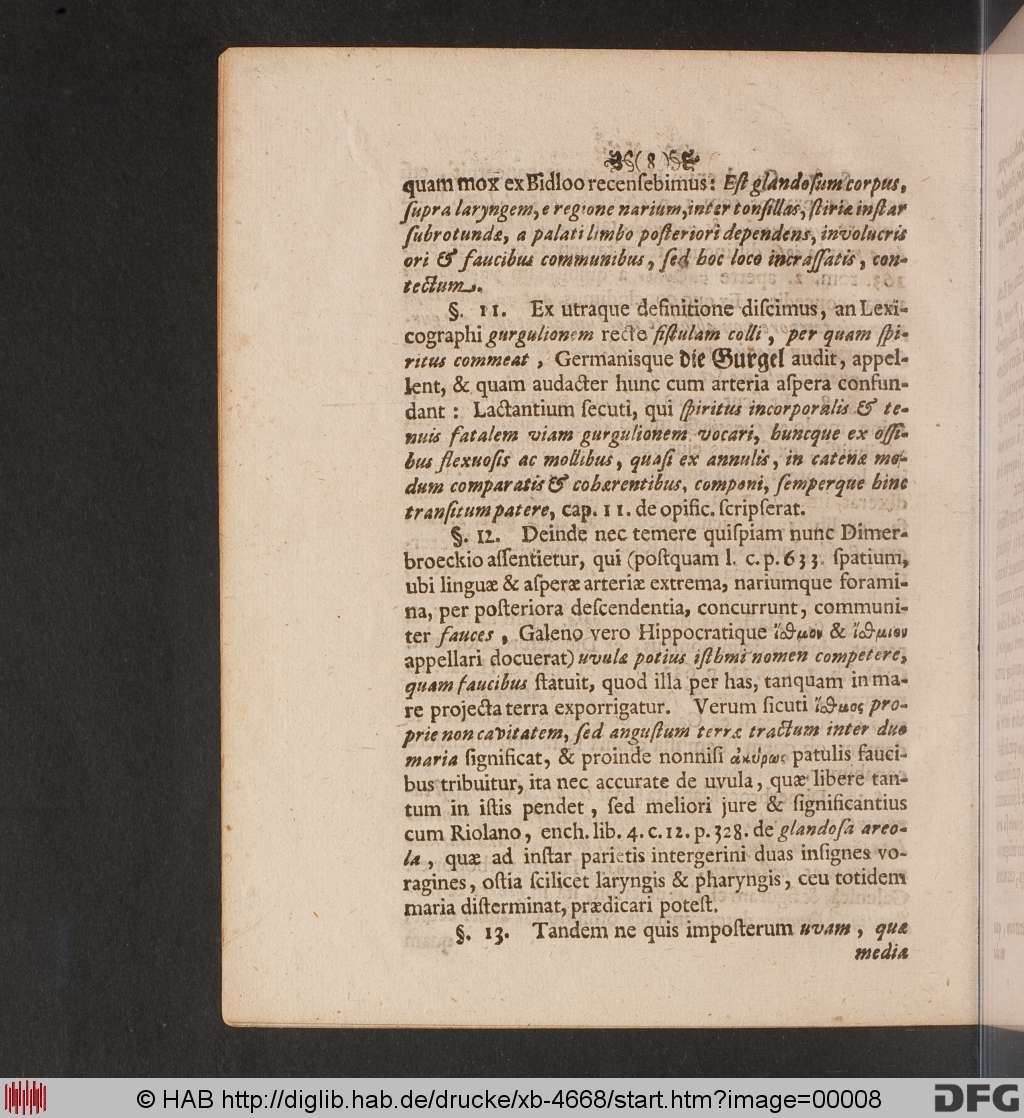 ( 8 )
quam mox ex Bidloo recenſebimus: Eſt glandoſum corpus,
ſupra laryngem, e regione narium, inter tonſillas, ſtiriæ inſtar
ſubrotundæ, a palati limbo poſteriori dependens, involucris
ori & faucibus communibus, ſed hoc loco incraſſatis, con-
tectum.
§. 11. Ex utraque definitione diſcimus, an Lexi-
cographi gurgulionem recte fiſtulam colli, per quam ſpi-
ritus commeat, Germanisque die Gurgel audit, appel-
lent, & quam audacter hunc cum arteria aſpera confun-
dant: Lactantium ſecuti, qui ſpiritus incorporalis & te-
nuis fatalem viam gurgulionem vocari, huncque ex oſſi-
bus flexuoſis ac mollibus, quaſi ex annulis, in catenæ mo-
dum comparatis & cohærentibus, componi, ſemperque hinc
tranſitum patere, cap. 11. de opific. ſcripſerat.
§. 12. Deinde nec temere quiſpiam nunc Dimer-
broeckio aſſentietur, qui (poſtquam l. c. p. 633. ſpatium,
ubi linguæ & aſperæ arteriæ extrema, nariumque forami-
na, per poſteriora deſcendentia, concurrunt, communi-
ter fauces, Galeno vero Hippocratique ἴσθμον & ἴσθμιον
appellari docuerat) uvulæ potius iſthmi nomen competere,
quam faucibus ſtatuit, quod illa per has, tanquam in ma-
re projecta terra exporrigatur. Verum ſicuti ἴσθμος pro-
prie non cavitatem, ſed anguſtum terræ tractum inter duo
maria ſignificat, & proinde nonniſi ἀκύρως patulis fauci-
bus tribuitur, ita nec accurate de uvula, quæ libere tan-
tum in iſtis pendet, ſed meliori jure & ſignificantius
cum Riolano, ench. lib. 4. c. 12. p. 328. de glandoſa areo-
la, quæ ad inſtar parietis intergerini duas inſignes vo-
ragines, oſtia ſcilicet laryngis & pharyngis, ceu totidem
maria diſterminat, prædicari poteſt.
§. 13. Tandem ne quis impoſterum uvam, quæ
media
© HAB http://diglib.hab.de/drucke/xb-4668/start.htm?image=00008
DFG